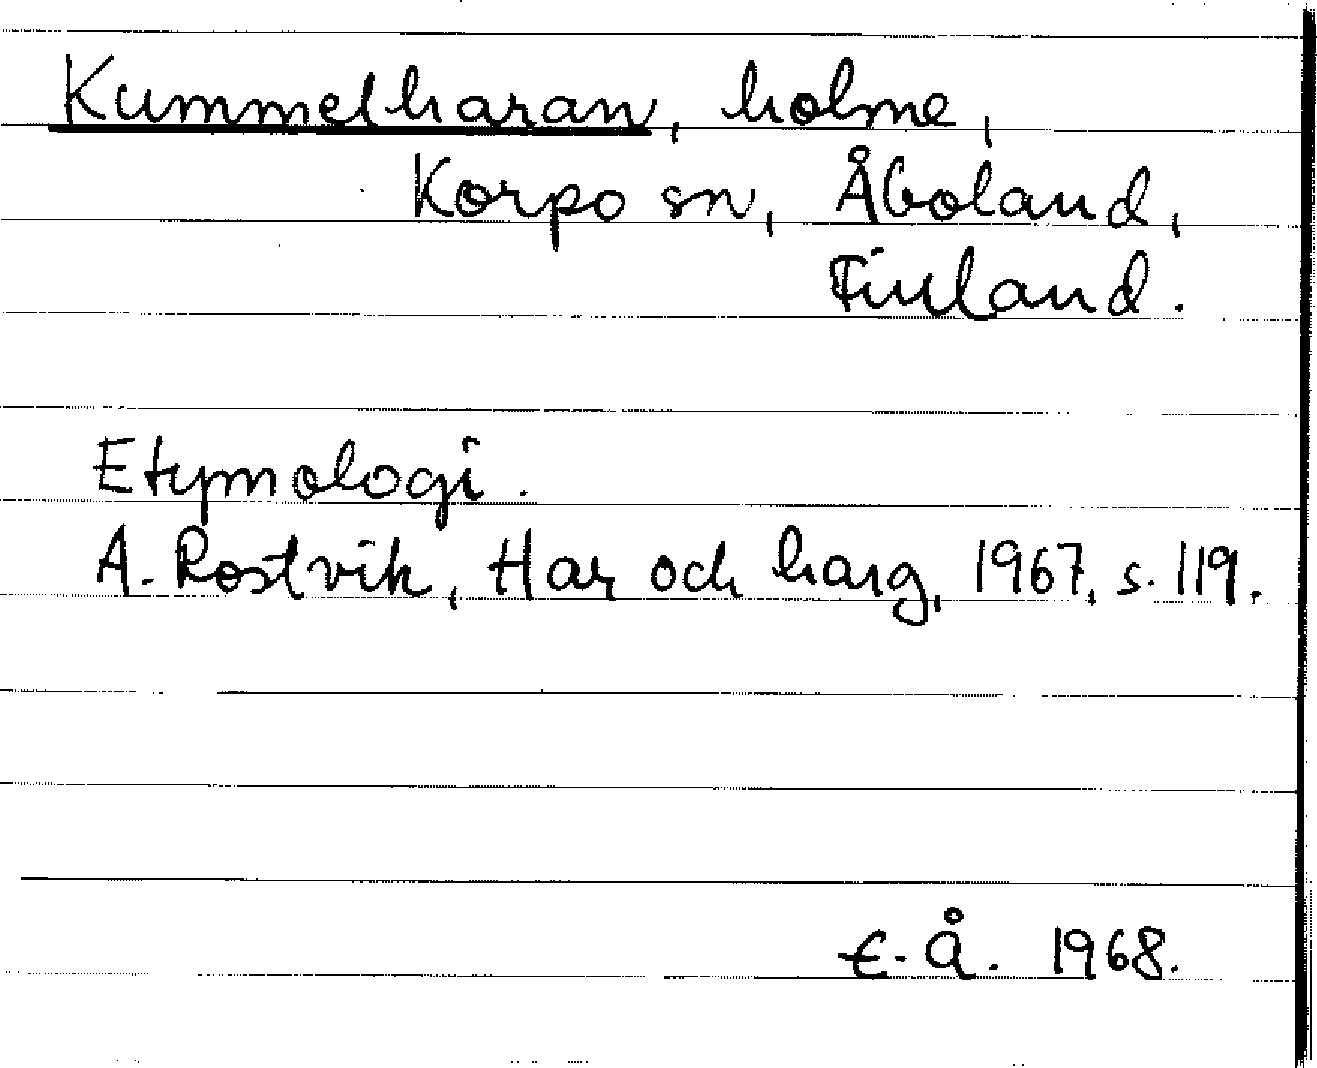 Kummelharan, holme,
Korpo sn, Åboland,
Finland.
Etymologi.
A. Rostvik, Har och harg, 1967, s. 119.
E. Å. 1968.